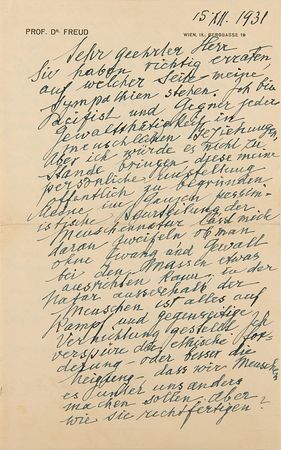 15 XII. 1931
PROF. DR. FREUD
WIEN, IX. BERGGASSE 19
Sehr geehrter Herr
Sie haben richtig erraten
auf welcher Seite meine
Sympathien stehen. Ich bin
Pacifist und Gegner jeder
Gewaltthätigkeit in
menschlichen Beziehungen,
Aber ich würde es nicht zu
Stande bringen diese meine
persönliche Einstellung
öffentlich zu begründen.
Meine pessim-
istische Beurteilung der
Menschennatur lässt mich
daran zweifeln, ob man
ohne Zwang und Gewalt
bei den Mensch etwas
ausrichten kann; in der
Natur ausserhalb der
Menschen ist alles auf
Kampf und gegenseitige
Vernichtung gestellt. Ich
verspüre die ethische For-
derung - oder besser die
Neigung - dass wir Menschen
es unter uns anders
machen sollen. Aber
wie sie rechtfertigen?